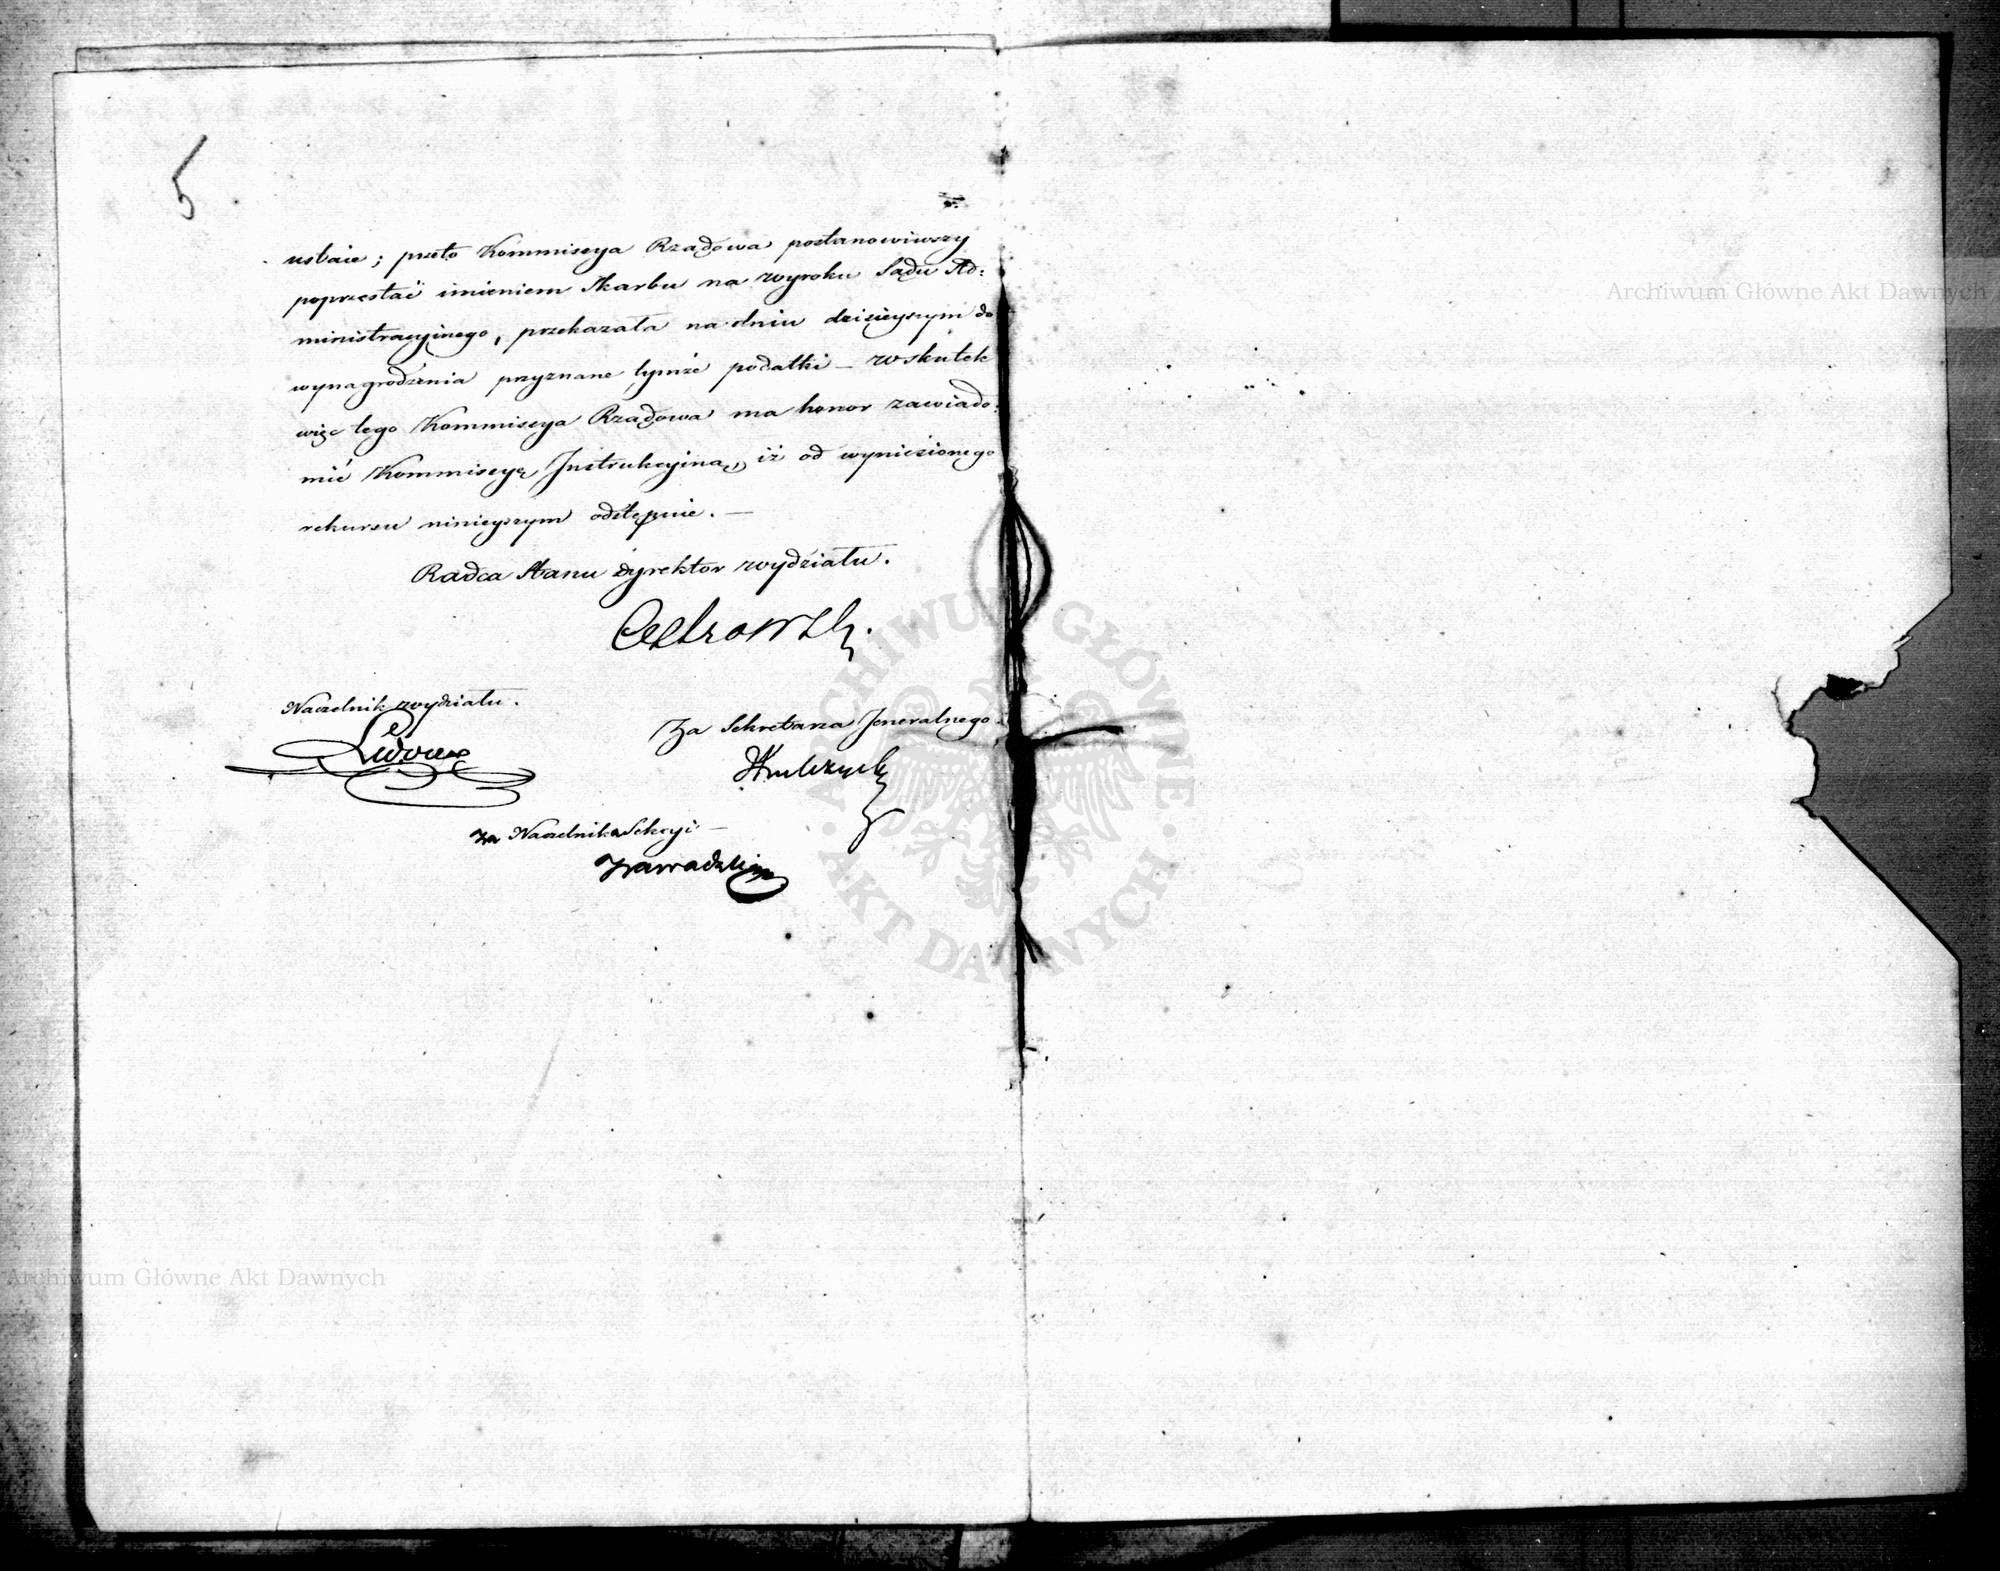 5
ustaie; przeto Kommissya Rządowa postanowiwszy
poprzestać imieniem Skarbu na wyroku Sądu Ad=
ministracyjnego, przekazała na dniu dzisieyszym do
wynagrodzenia przyznane tymże podatki – w skutek
więc tego Kommissya Rządowa ma honor zawiado=
mić Kommissyę Instrukcyjną, iż od wyniesionego
rekursu ninieyszym odstępuie. —
Radca Stanu Dyrektor wydziału.
Naczelnik wydziału.
Za Sekretarza Jeneralnego
za Naczelnika Sekcyi –
Zawadzki
Archiwum Główne Akt Dawnych
ARCHIWUM GŁÓWNE AKT DAWNYCH
Archiwum Główne Akt Dawnych